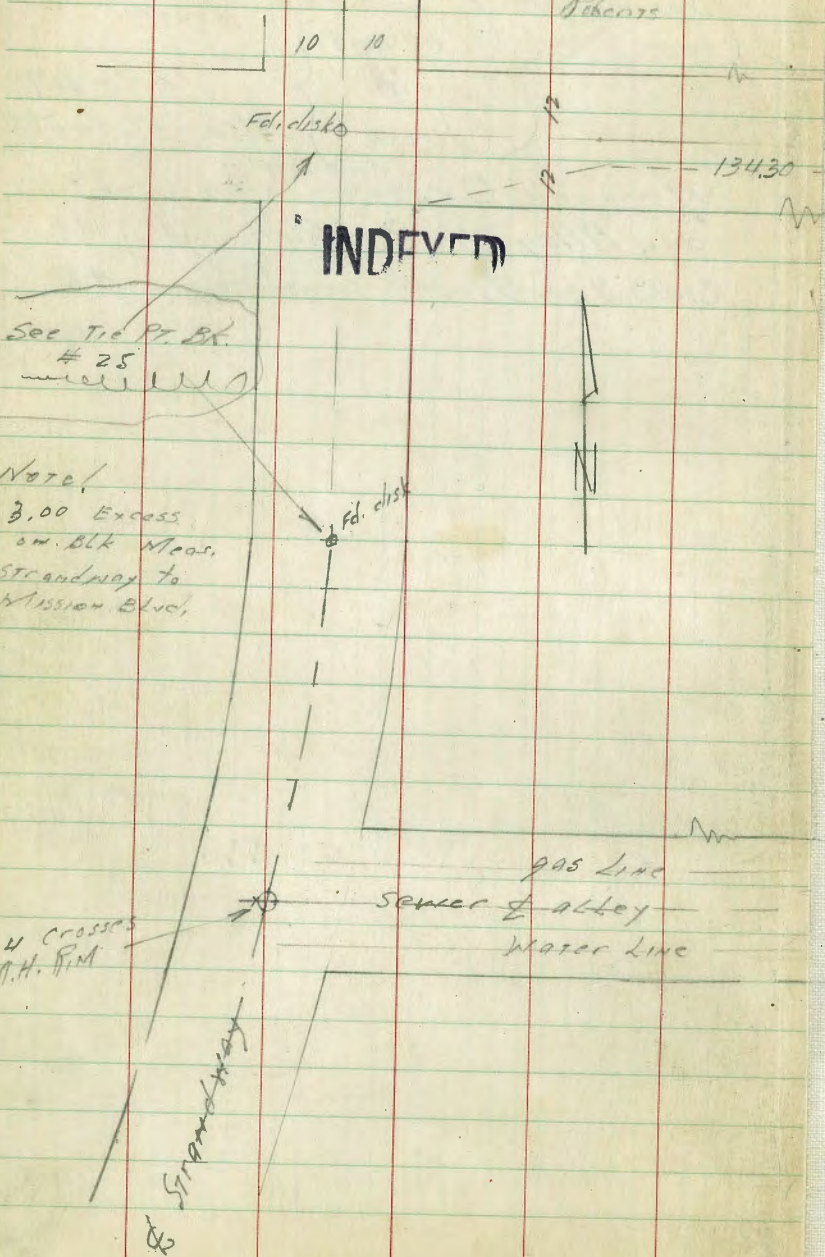 10 10
Fd. disk
12
12
134.30
INDEXED
See Tie Pt. Bk.
# 25
Note!
3.00 Excess
on Blk Meas.
Strandway to
Mission Blvd.
N
Fd. disk
gas Line
Sewer ℄ alley
Water Line
4 crosses
M.H. RIM
℄ Strandway